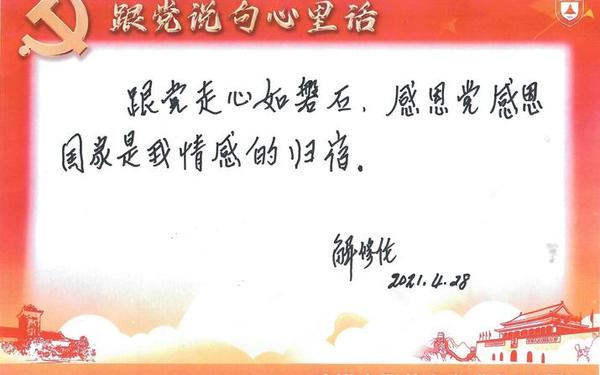 跟党说句心里话
跟党走心如磐石、感恩党感恩
国家是我情感的归宿。
解修佗
2021.4.28